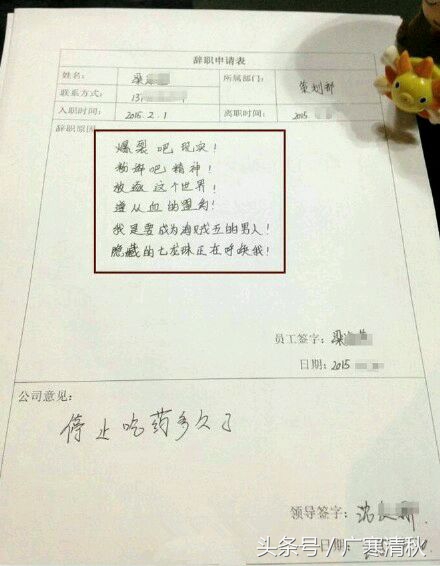 辞职申请表
姓名: 梁
所属部门: 策划部
联系方式: 13
入职时间: 2015.2.1
离职时间: 2015
辞职原因:
爆裂吧现实!
粉碎吧精神!
放逐这个世界!
遵从血的盟约!
我是要成为海贼王的男人!
隐藏的七龙珠正在呼唤我!
员工签字: 梁
日期: 2015
公司意见:
停止吃药多久了
领导签字: 沈
日期:
头条号/广寒清秋